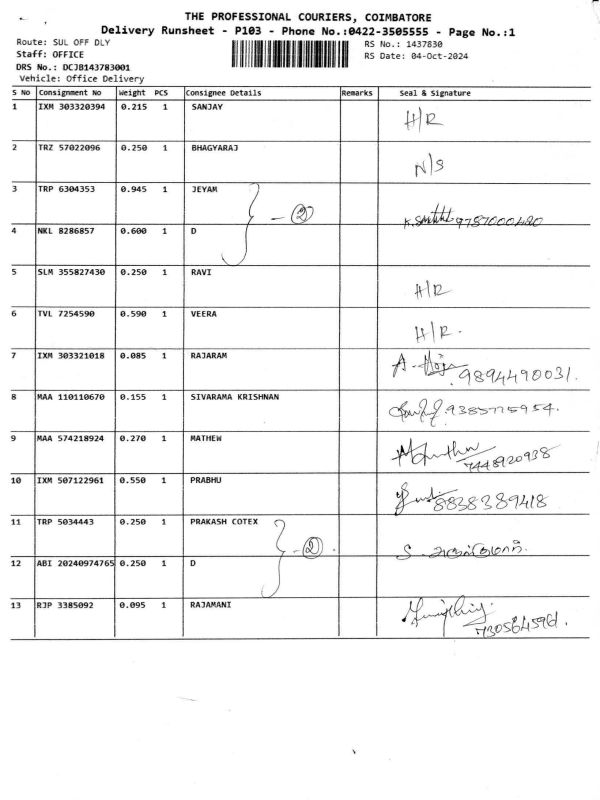 THE PROFESSIONAL COURIERS, COIMBATORE
Delivery Runsheet - P103 - Phone No.:0422-3505555 - Page No.:1
Route: SUL OFF DLY
RS No.: 1437830
Staff: OFFICE
RS Date: 04-Oct-2024
DRS No.: DCJB143783001
Vehicle: Office Delivery
S No Consignment No Weight PCS Consignee Details Remarks Seal & Signature
1 IXM 303320394 0.215 1 SANJAY H/R
2 TRZ 57022096 0.250 1 BHAGYARAJ N/S
3 TRP 6304353 0.945 1 JEYAM
- 2
9787000480
4 NKL 8286857 0.600 1 D
5 SLM 355827430 0.250 1 RAVI H/R
6 TVL 7254590 0.590 1 VEERA H/R.
7 IXM 303321018 0.085 1 RAJARAM 9894490031.
8 MAA 110110670 0.155 1 SIVARAMA KRISHNAN
9 MAA 574218924 0.270 1 MATHEW 7448920938
10 IXM 507122961 0.550 1 PRABHU 8838389418
11 TRP 5034443 0.250 1 PRAKASH COTEX
- 2.
12 ABI 20240974765 0.250 1 D
13 RJP 3385092 0.095 1 RAJAMANI 7305645961.